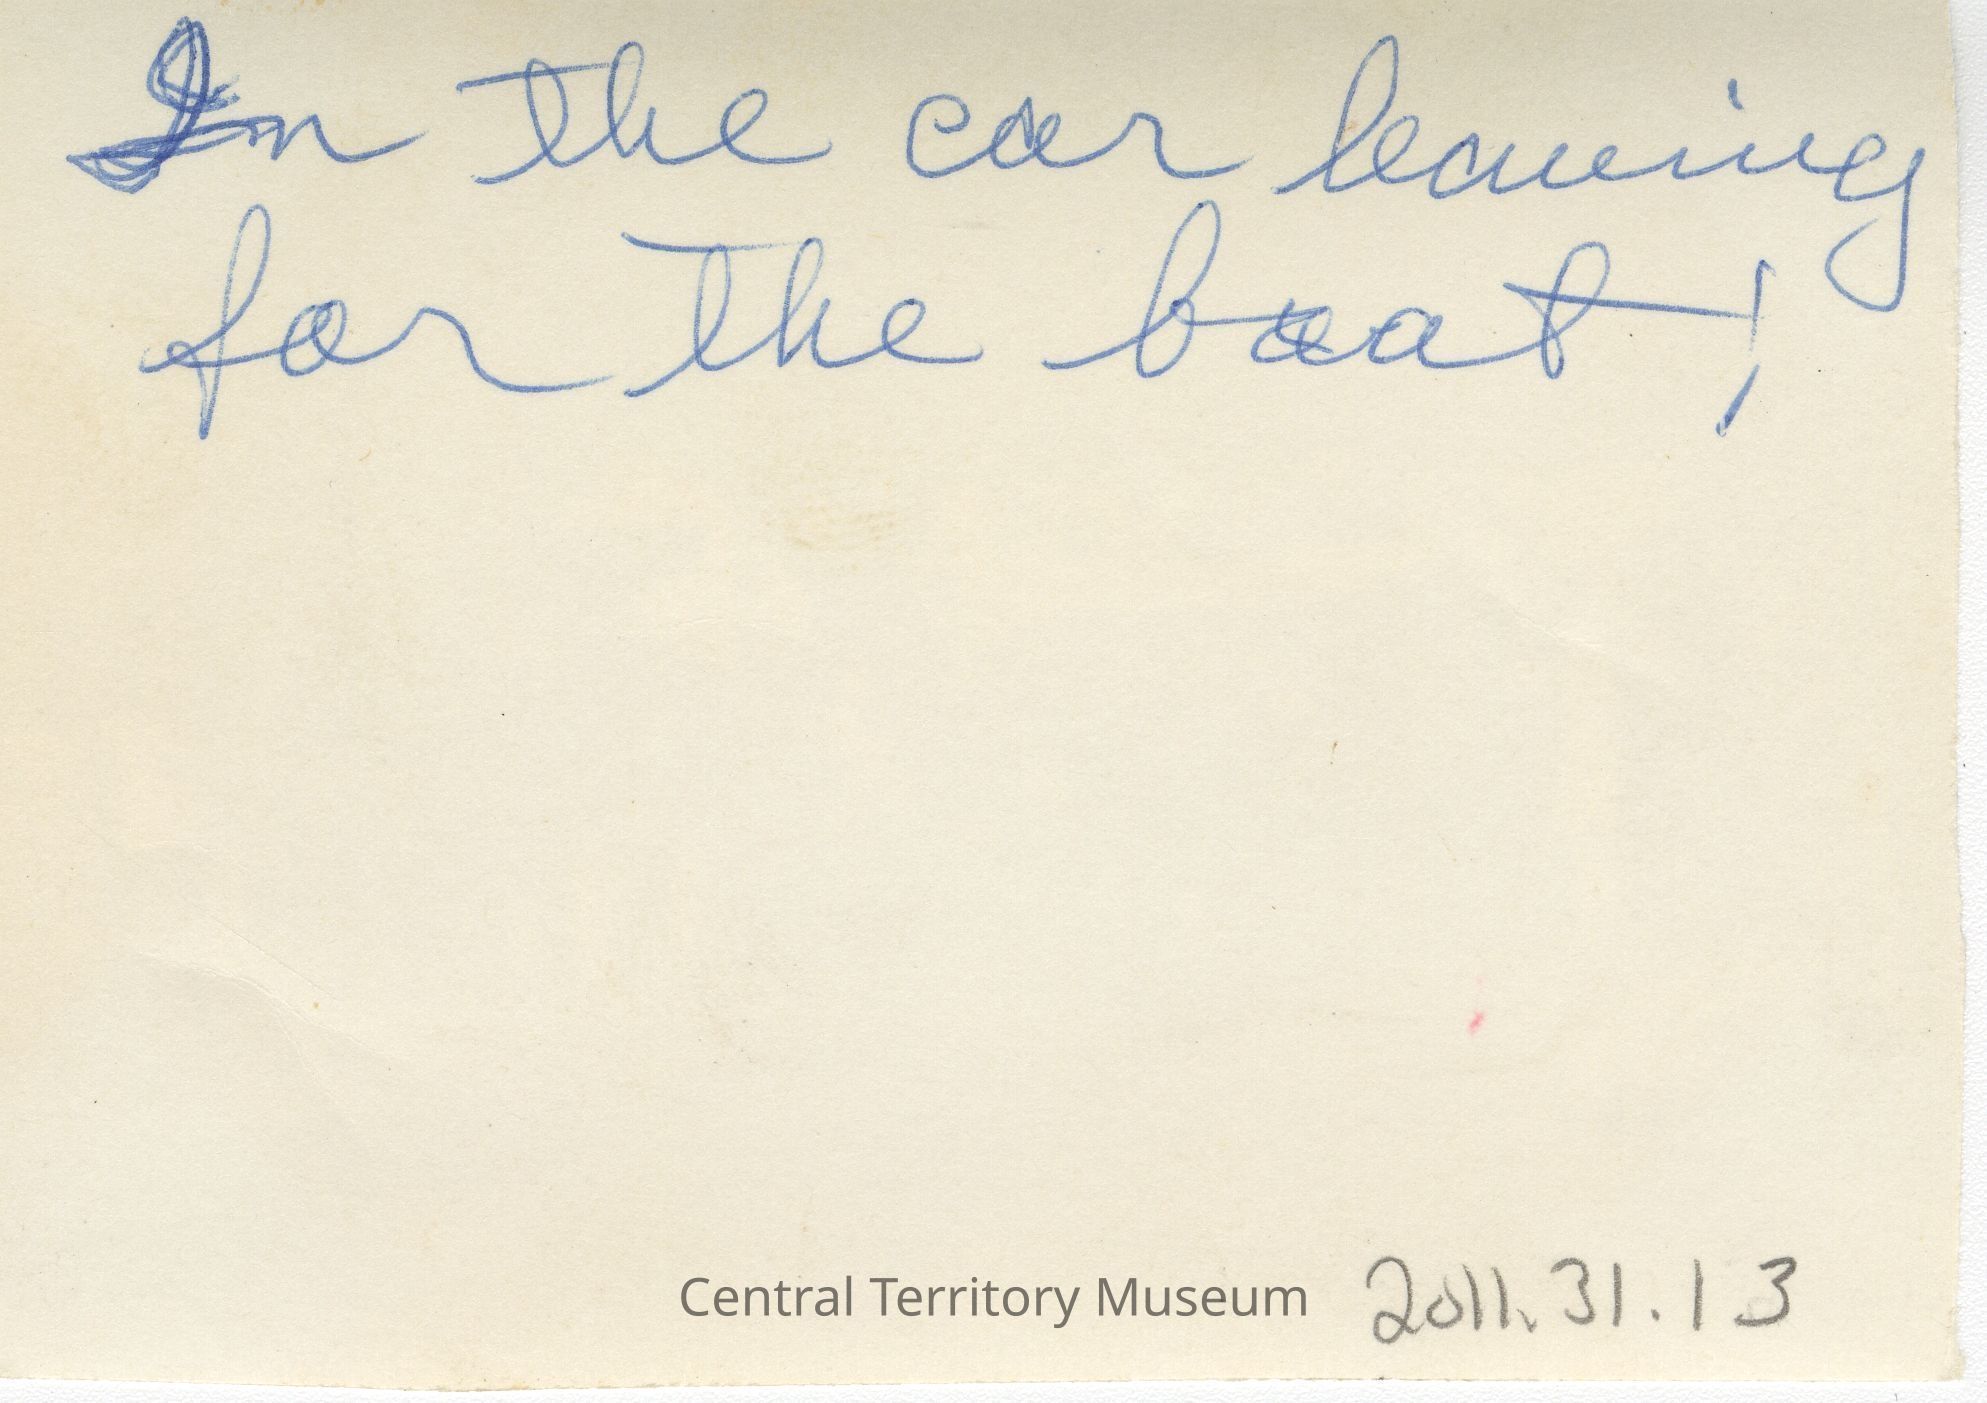 In the car leaving
for the boat!
Central Territory Museum 2011.31.13